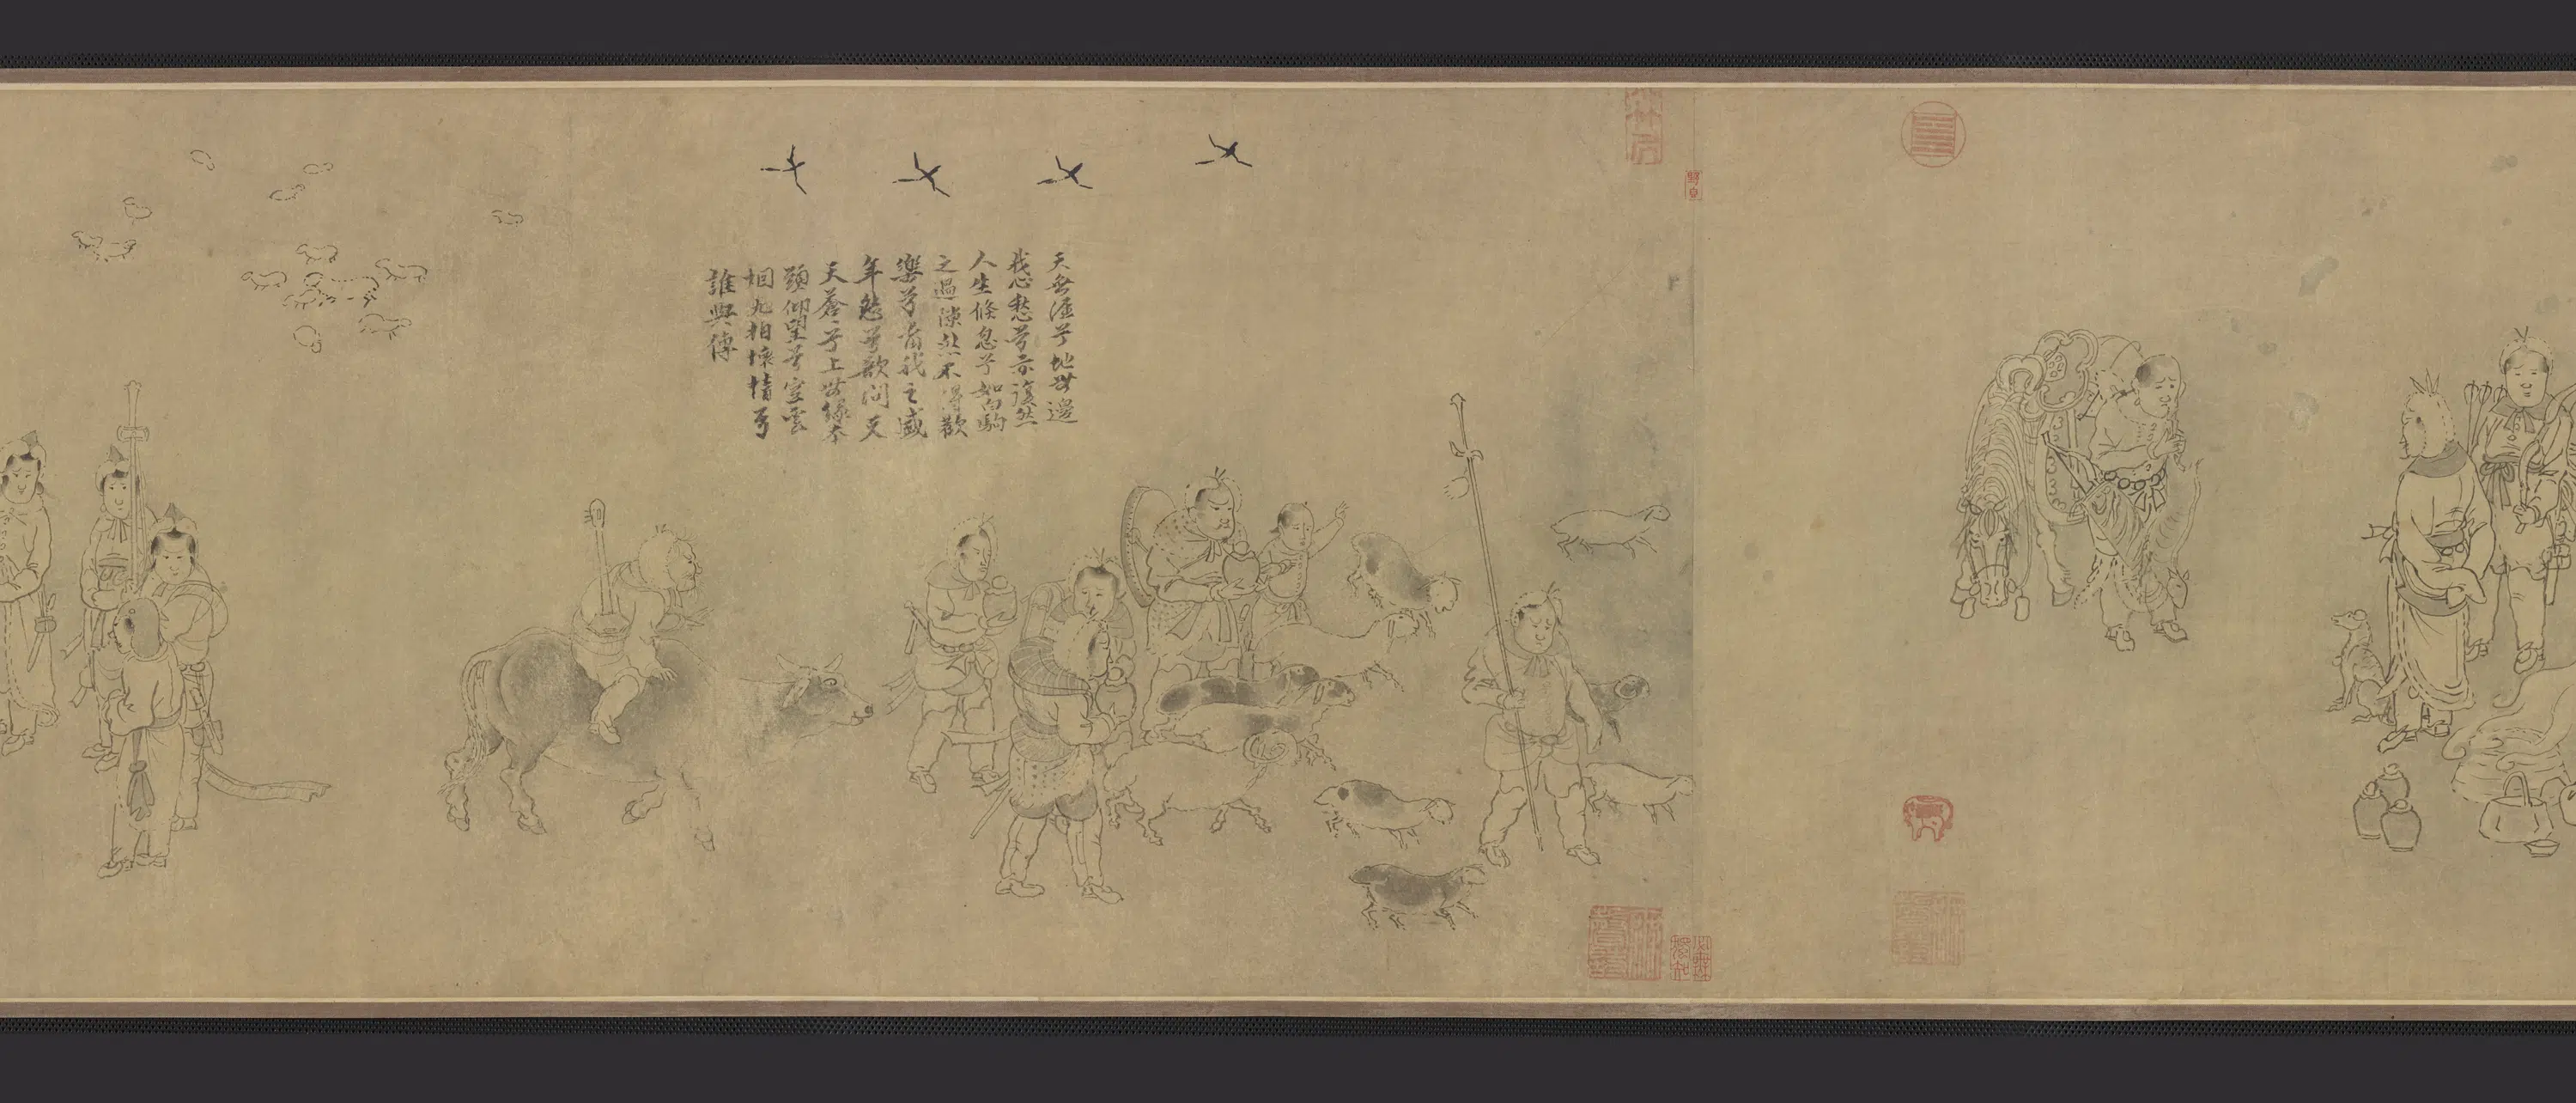 天無涯兮地無邊
我心愁兮亦復然
人生倏忽兮如白駒
之過隙然不得歡
樂兮當我之盛
年怨兮欲問天
天蒼蒼兮上無緣
舉頭仰望兮空雲
煙九拍懷情兮
誰與傳